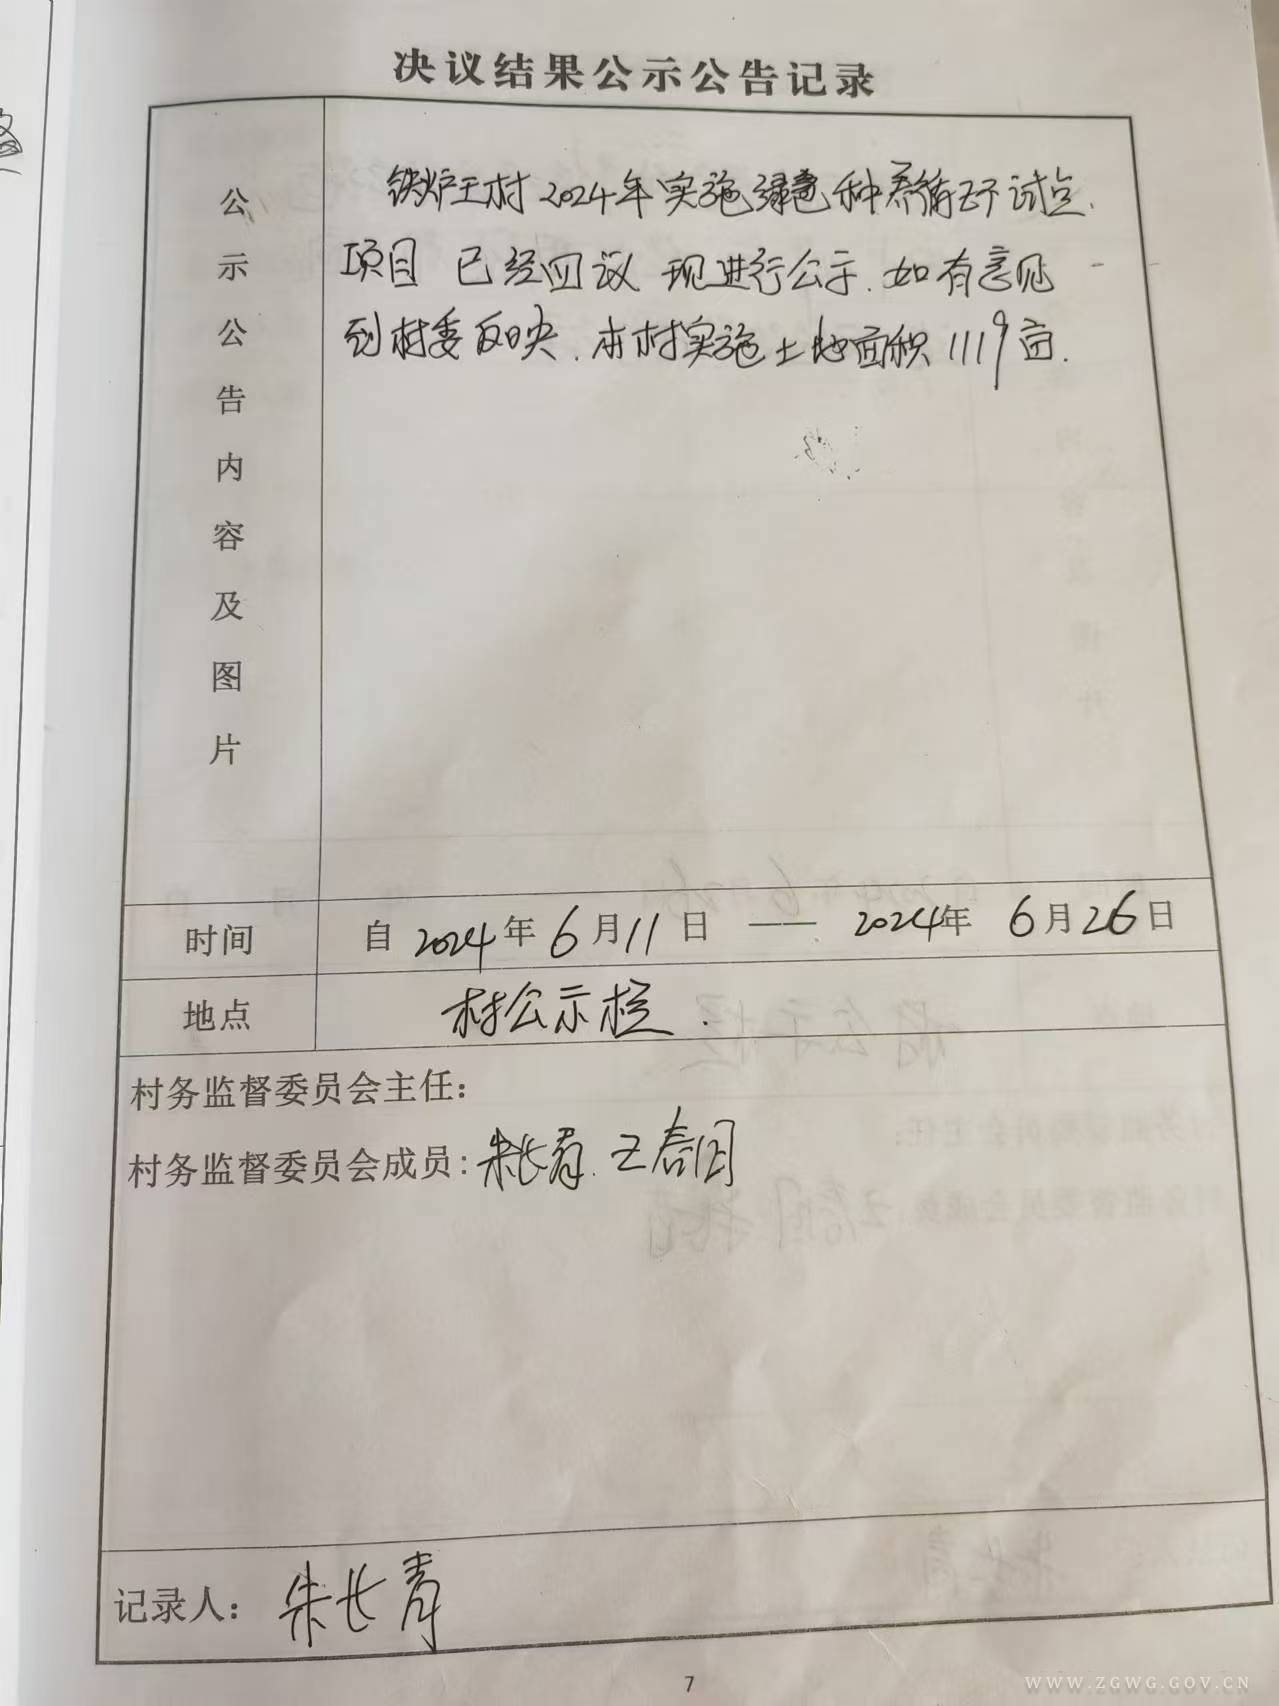 决议结果公示公告记录
公示公告内容及图片
铁炉王村2024年实施绿色种养循环试点
项目 已经四议 现进行公示.如有意见
到村委反映.本村实施土地面积1119亩.
时间 自2024年6月11日 —— 2024年6月26日
地点 村公示栏.
村务监督委员会主任:
村务监督委员会成员:朱长青.王春
记录人: 朱长青
7
WWW.ZGWG.GOV.CN